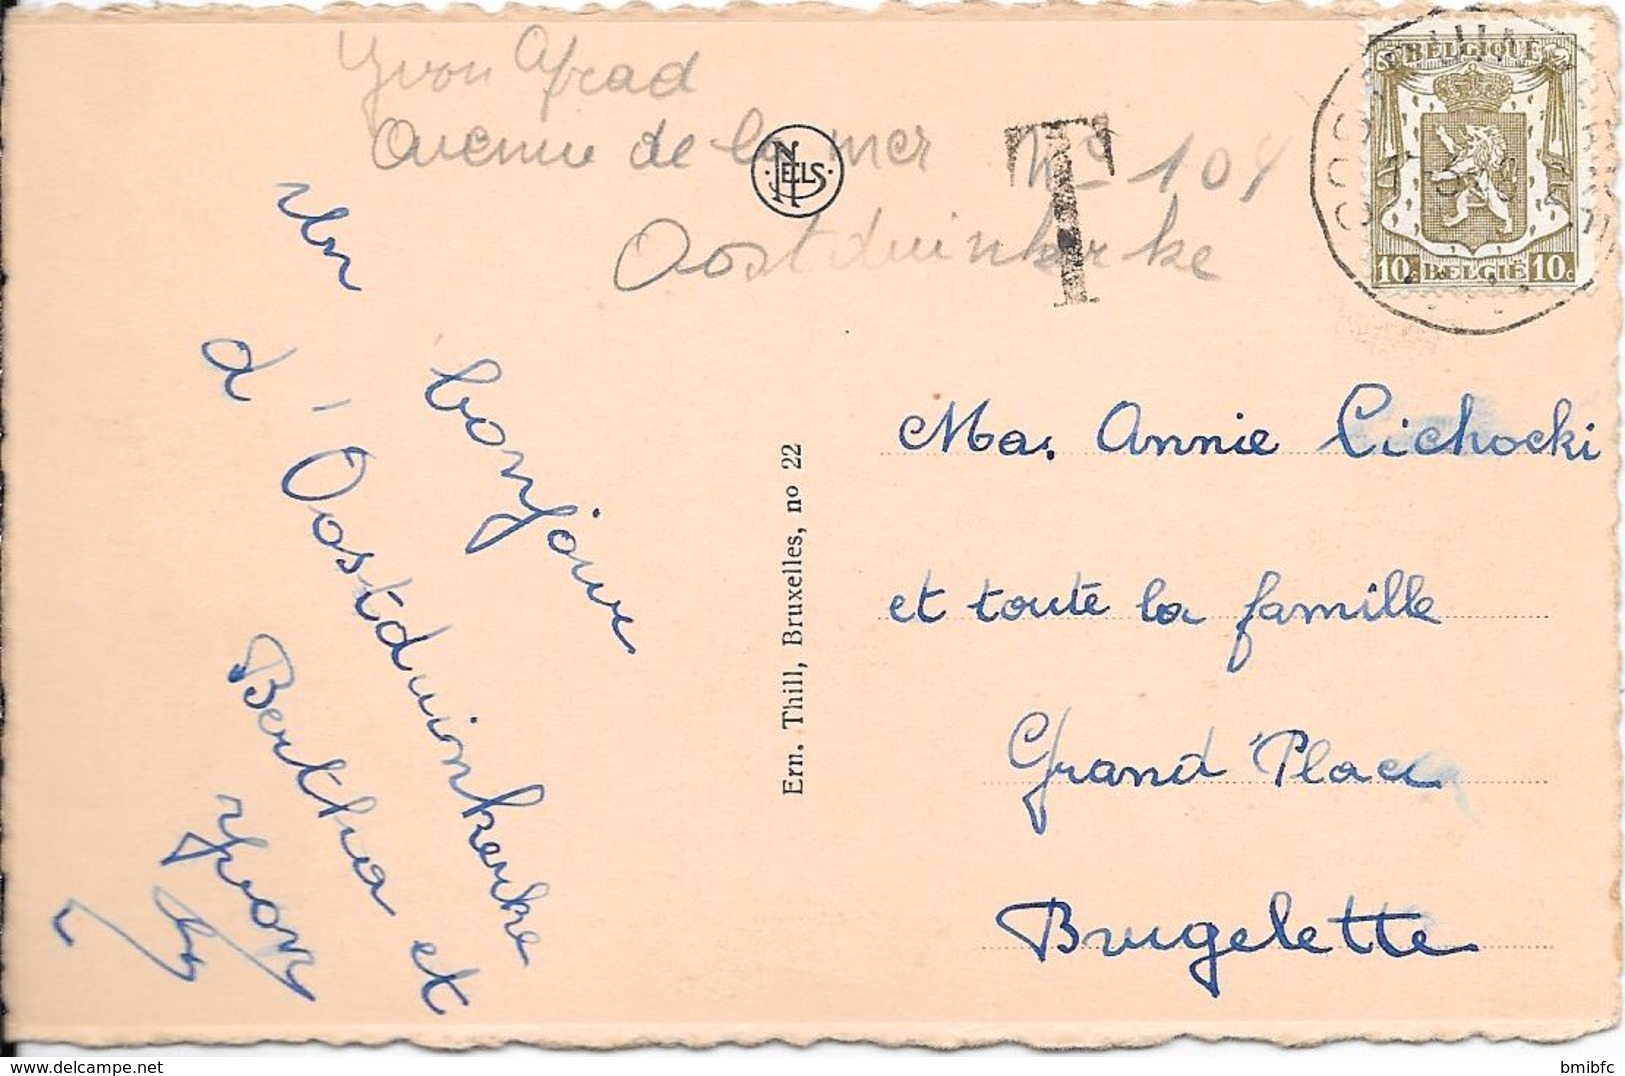 Yvon Afrad
Avenue de la mer N° 104
Oostduinkerke
NELS
T
BELGIQUE
10c BELGIË 10c
Un
bonjour
d'Oostduinkerke
Bertha et
Yvon
Ern. Thill, Bruxelles, no 22
Ma. Annie Cichocki
et toute la famille
Grand'Place
Brugelette
bmibfc